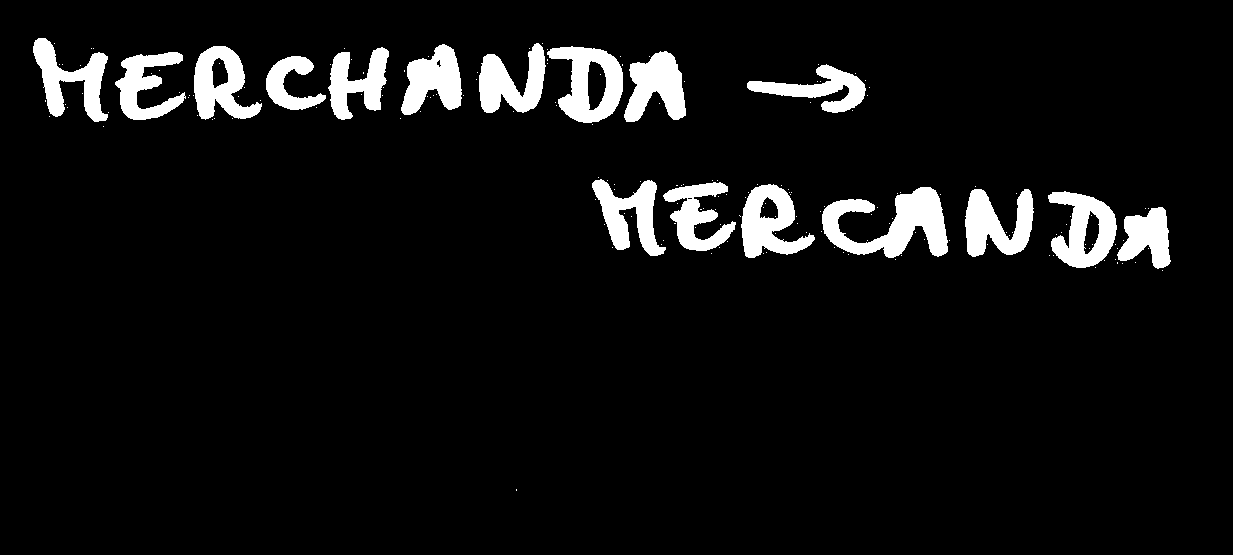 MERCHANDA →
MERCANDA